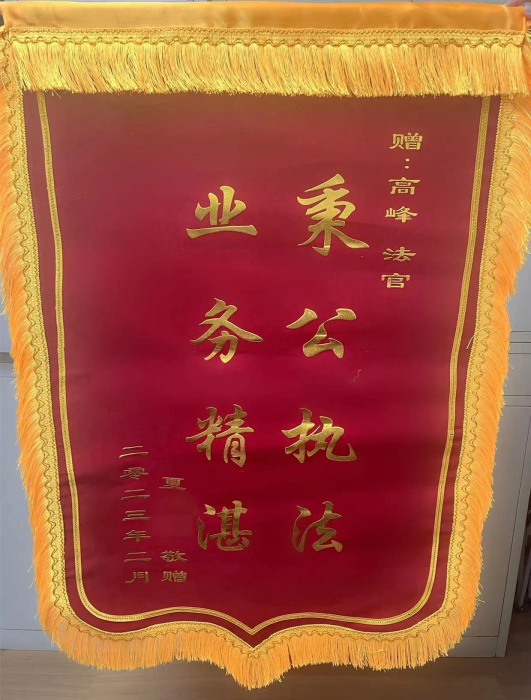 赠：高峰法官
秉公执法
业务精湛
夏 敬赠
二零二三年二月